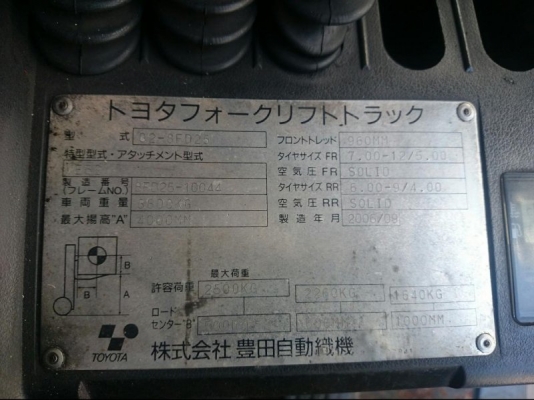 トヨタフォークリフトトラック
型 式
フロントトレッド 960MM
特型型式・アタッチメント型式
タイヤサイズ FR 7.00-12/5.00
空気圧 FR SOLID
製造番号
(フレームNO.)
タイヤサイズ RR 6.00-9/4.00
車両重量
空気圧 RR SOLID
最大揚高"A" 4000MM
製造年月 2006/08
B
B A
最大荷重
許容荷重 2500KG 1540KG
ロード
センター"B" 1000MM
TOYOTA
株式会社 豊田自動織機